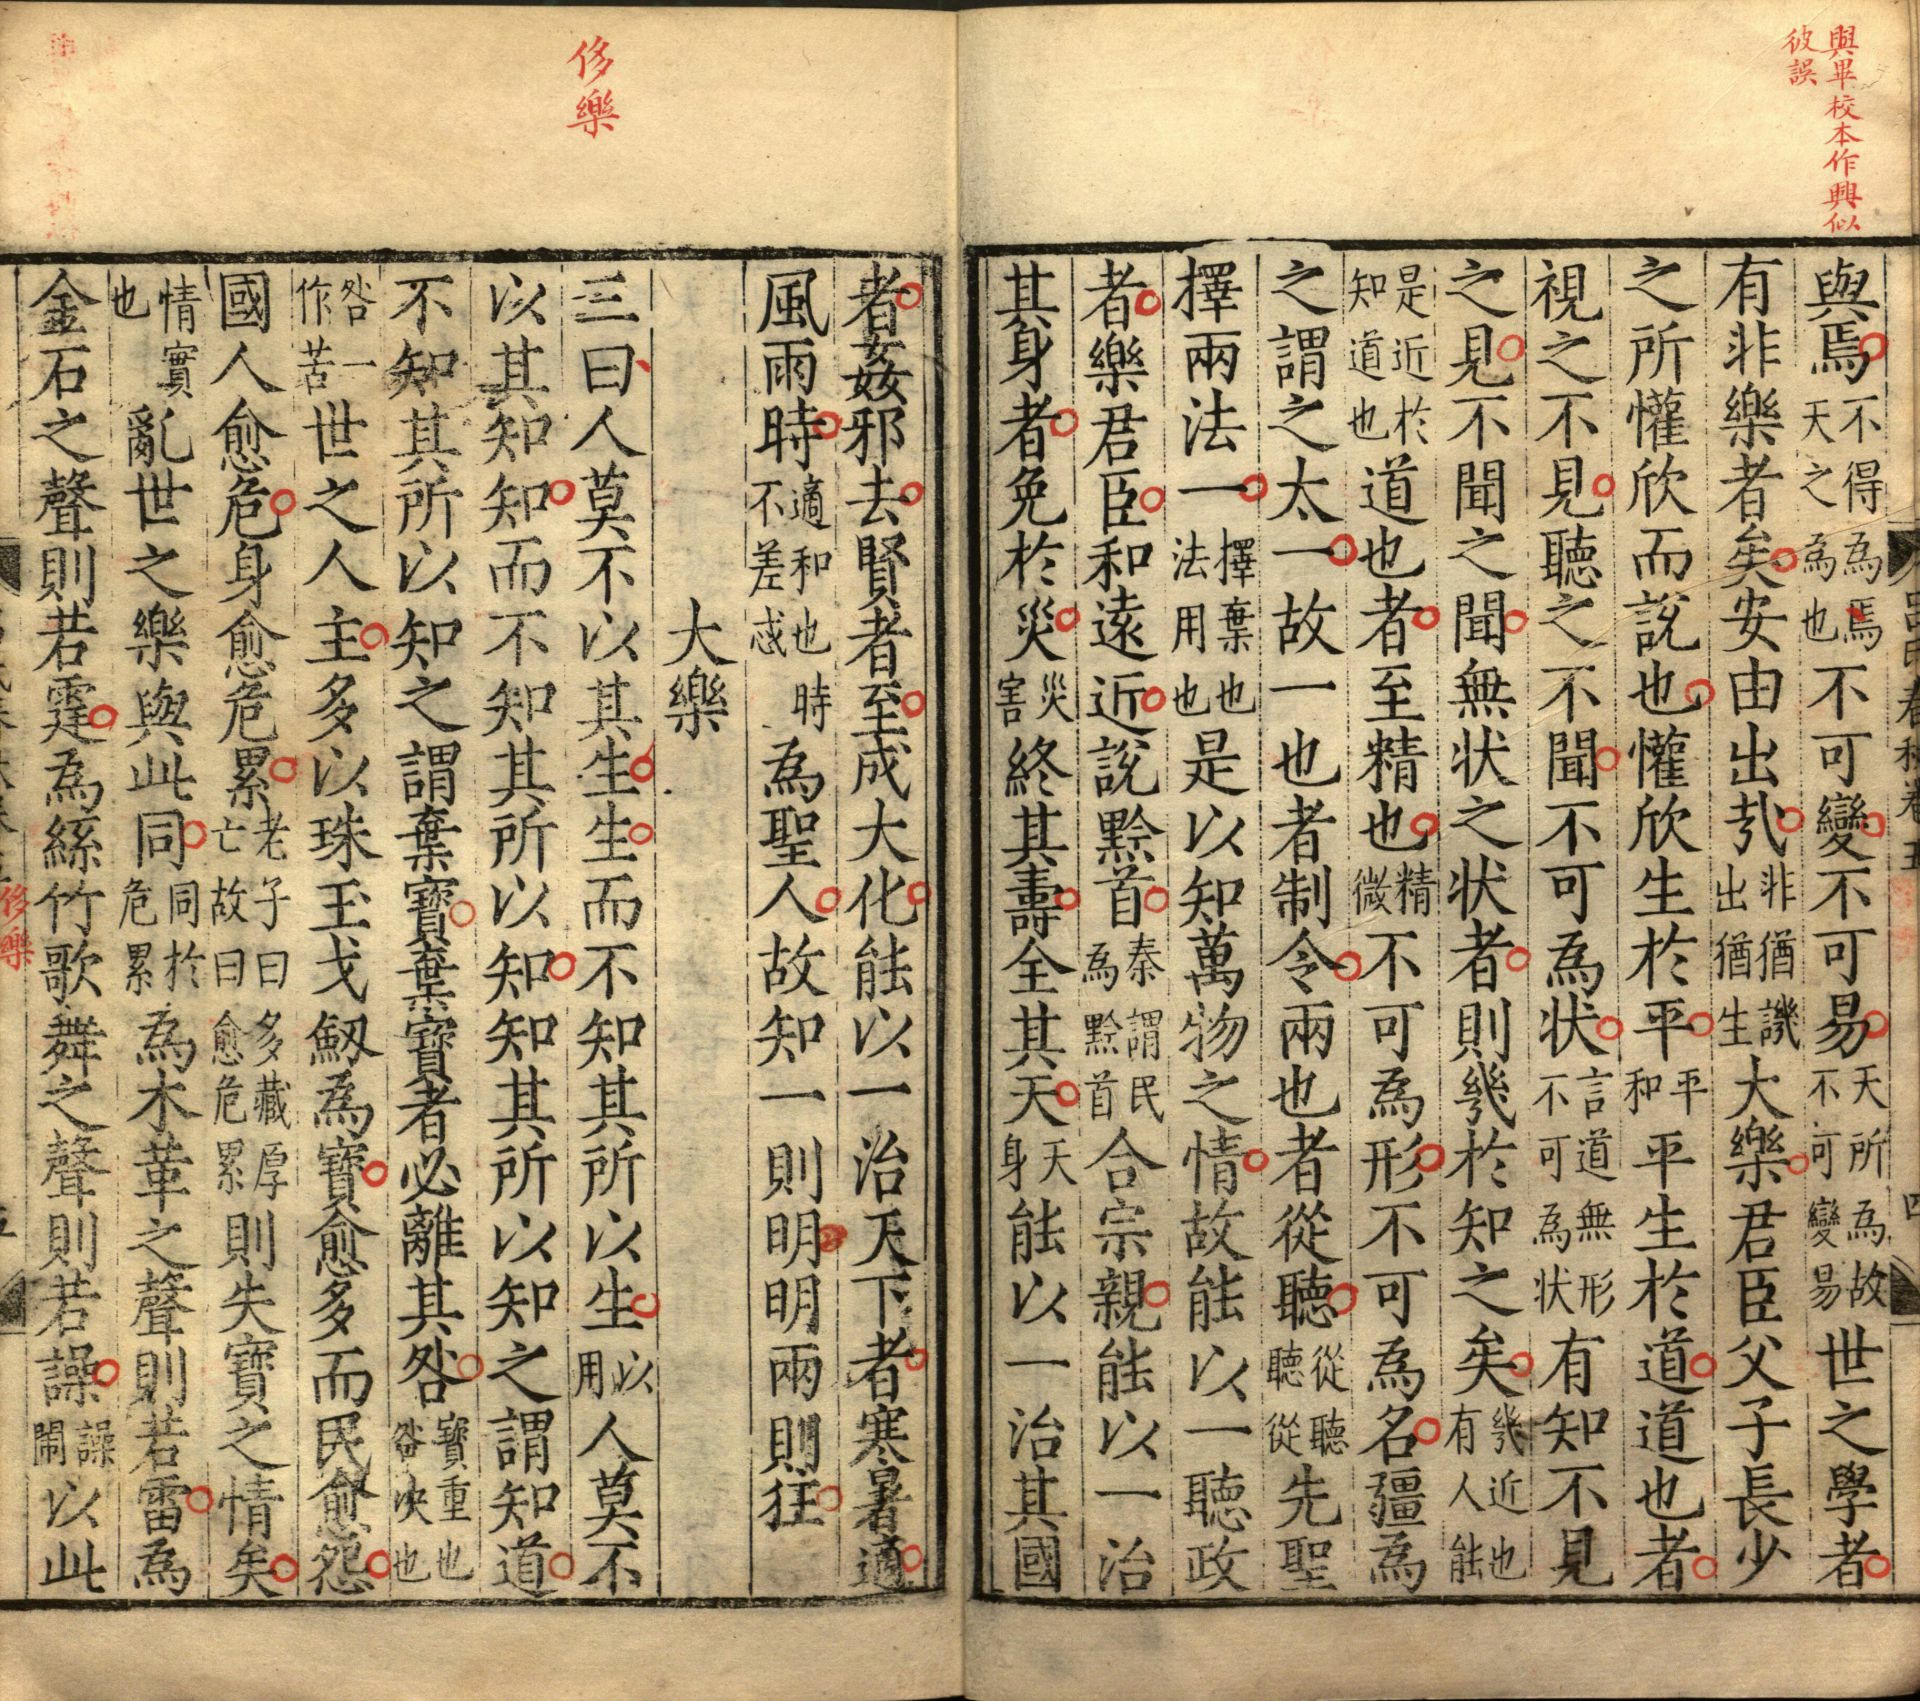 與畢校本作興似
彼誤
與焉不得為焉天之為也不可變不可易天所為故不可變易世之學者
有非樂者矣安由出㢤非猶譏出猶生大樂君臣父子長少
之所懽欣而說也懽欣生於平平和平生於道道也者
視之不見聽之不聞不可為狀言道無形不可為狀有知不見
之見不聞之聞無狀之狀者則幾於知之矣幾近也有人能
是近於知道也道也者至精也精微不可為形不可為名疆為
之謂之太一故一也者制令兩也者從聽從聽聽從先聖
擇兩法一擇棄也法用也是以知萬物之情故能以一聽政
者樂君臣和遠近說黔首秦謂民為黔首合宗親能以一治
其身者免於災災害終其壽全其天天身能以一治其國
者姦邪去賢者至成大化能以一治天下者寒暑適
風雨時適和也時不差忒為聖人故知一則明明兩則狂
大樂
侈樂
三曰人莫不以其生生而不知其所以生以用人莫不
以其知知而不知其所以知知其所以知之謂知道
不知其所以知之謂棄寶棄寶者必離其咎寶重也咎殃也
咎一作苦世之人主多以珠玉戈劒為寶愈多而民愈怨
國人愈危身愈危累老子曰多藏厚亡故曰愈危累則失寶之情矣
情實也亂世之樂與此同同於危累為木革之聲則若雷為
金石之聲則若霆為絲竹歌舞之聲則若譟譟鬧以此
侈樂